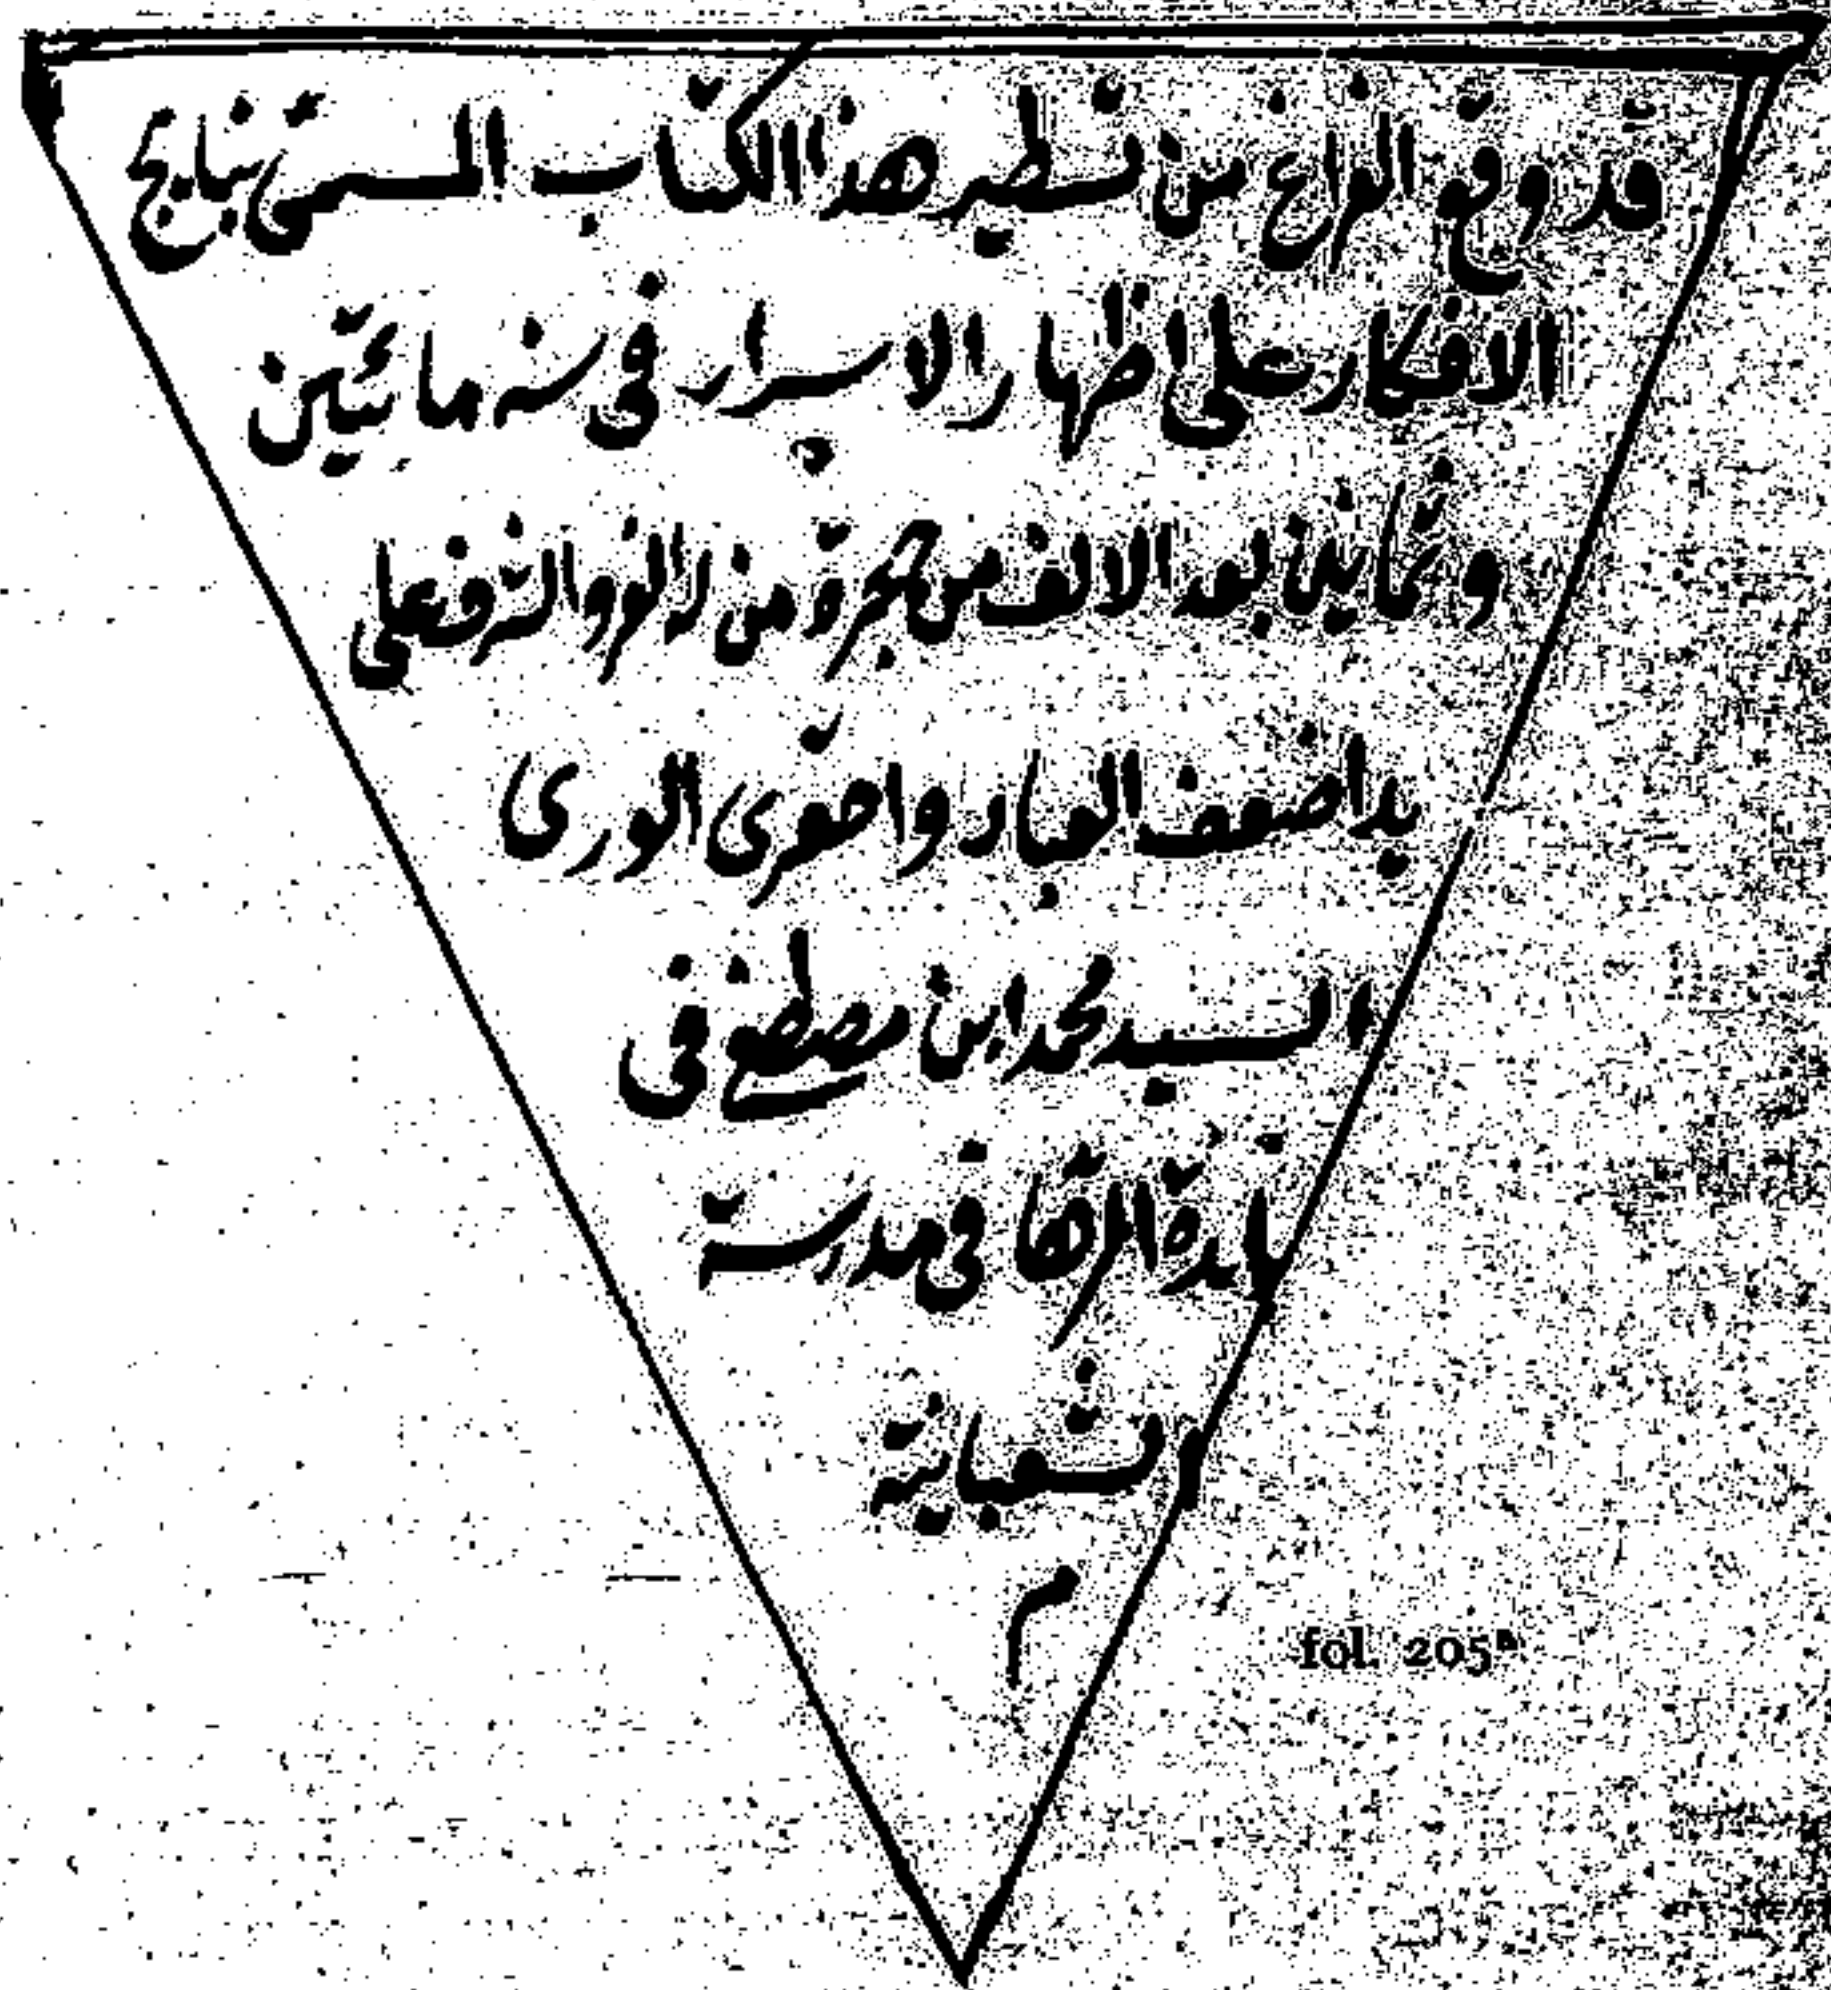 قد وقع الفراغ من تسطير هذا الكتاب المسمى بنتايج
الافكار على اظهار الاسرار فى سنه مائتين
وثمانين بعد الالف من هجرة من له العز والشرف على
يد اضعف العباد واحقرى الورى
السيد محمد ابن مصطفى فى
بلدة الرها فى مدرسة
الشعبانية
م
fol. 205ᵃ